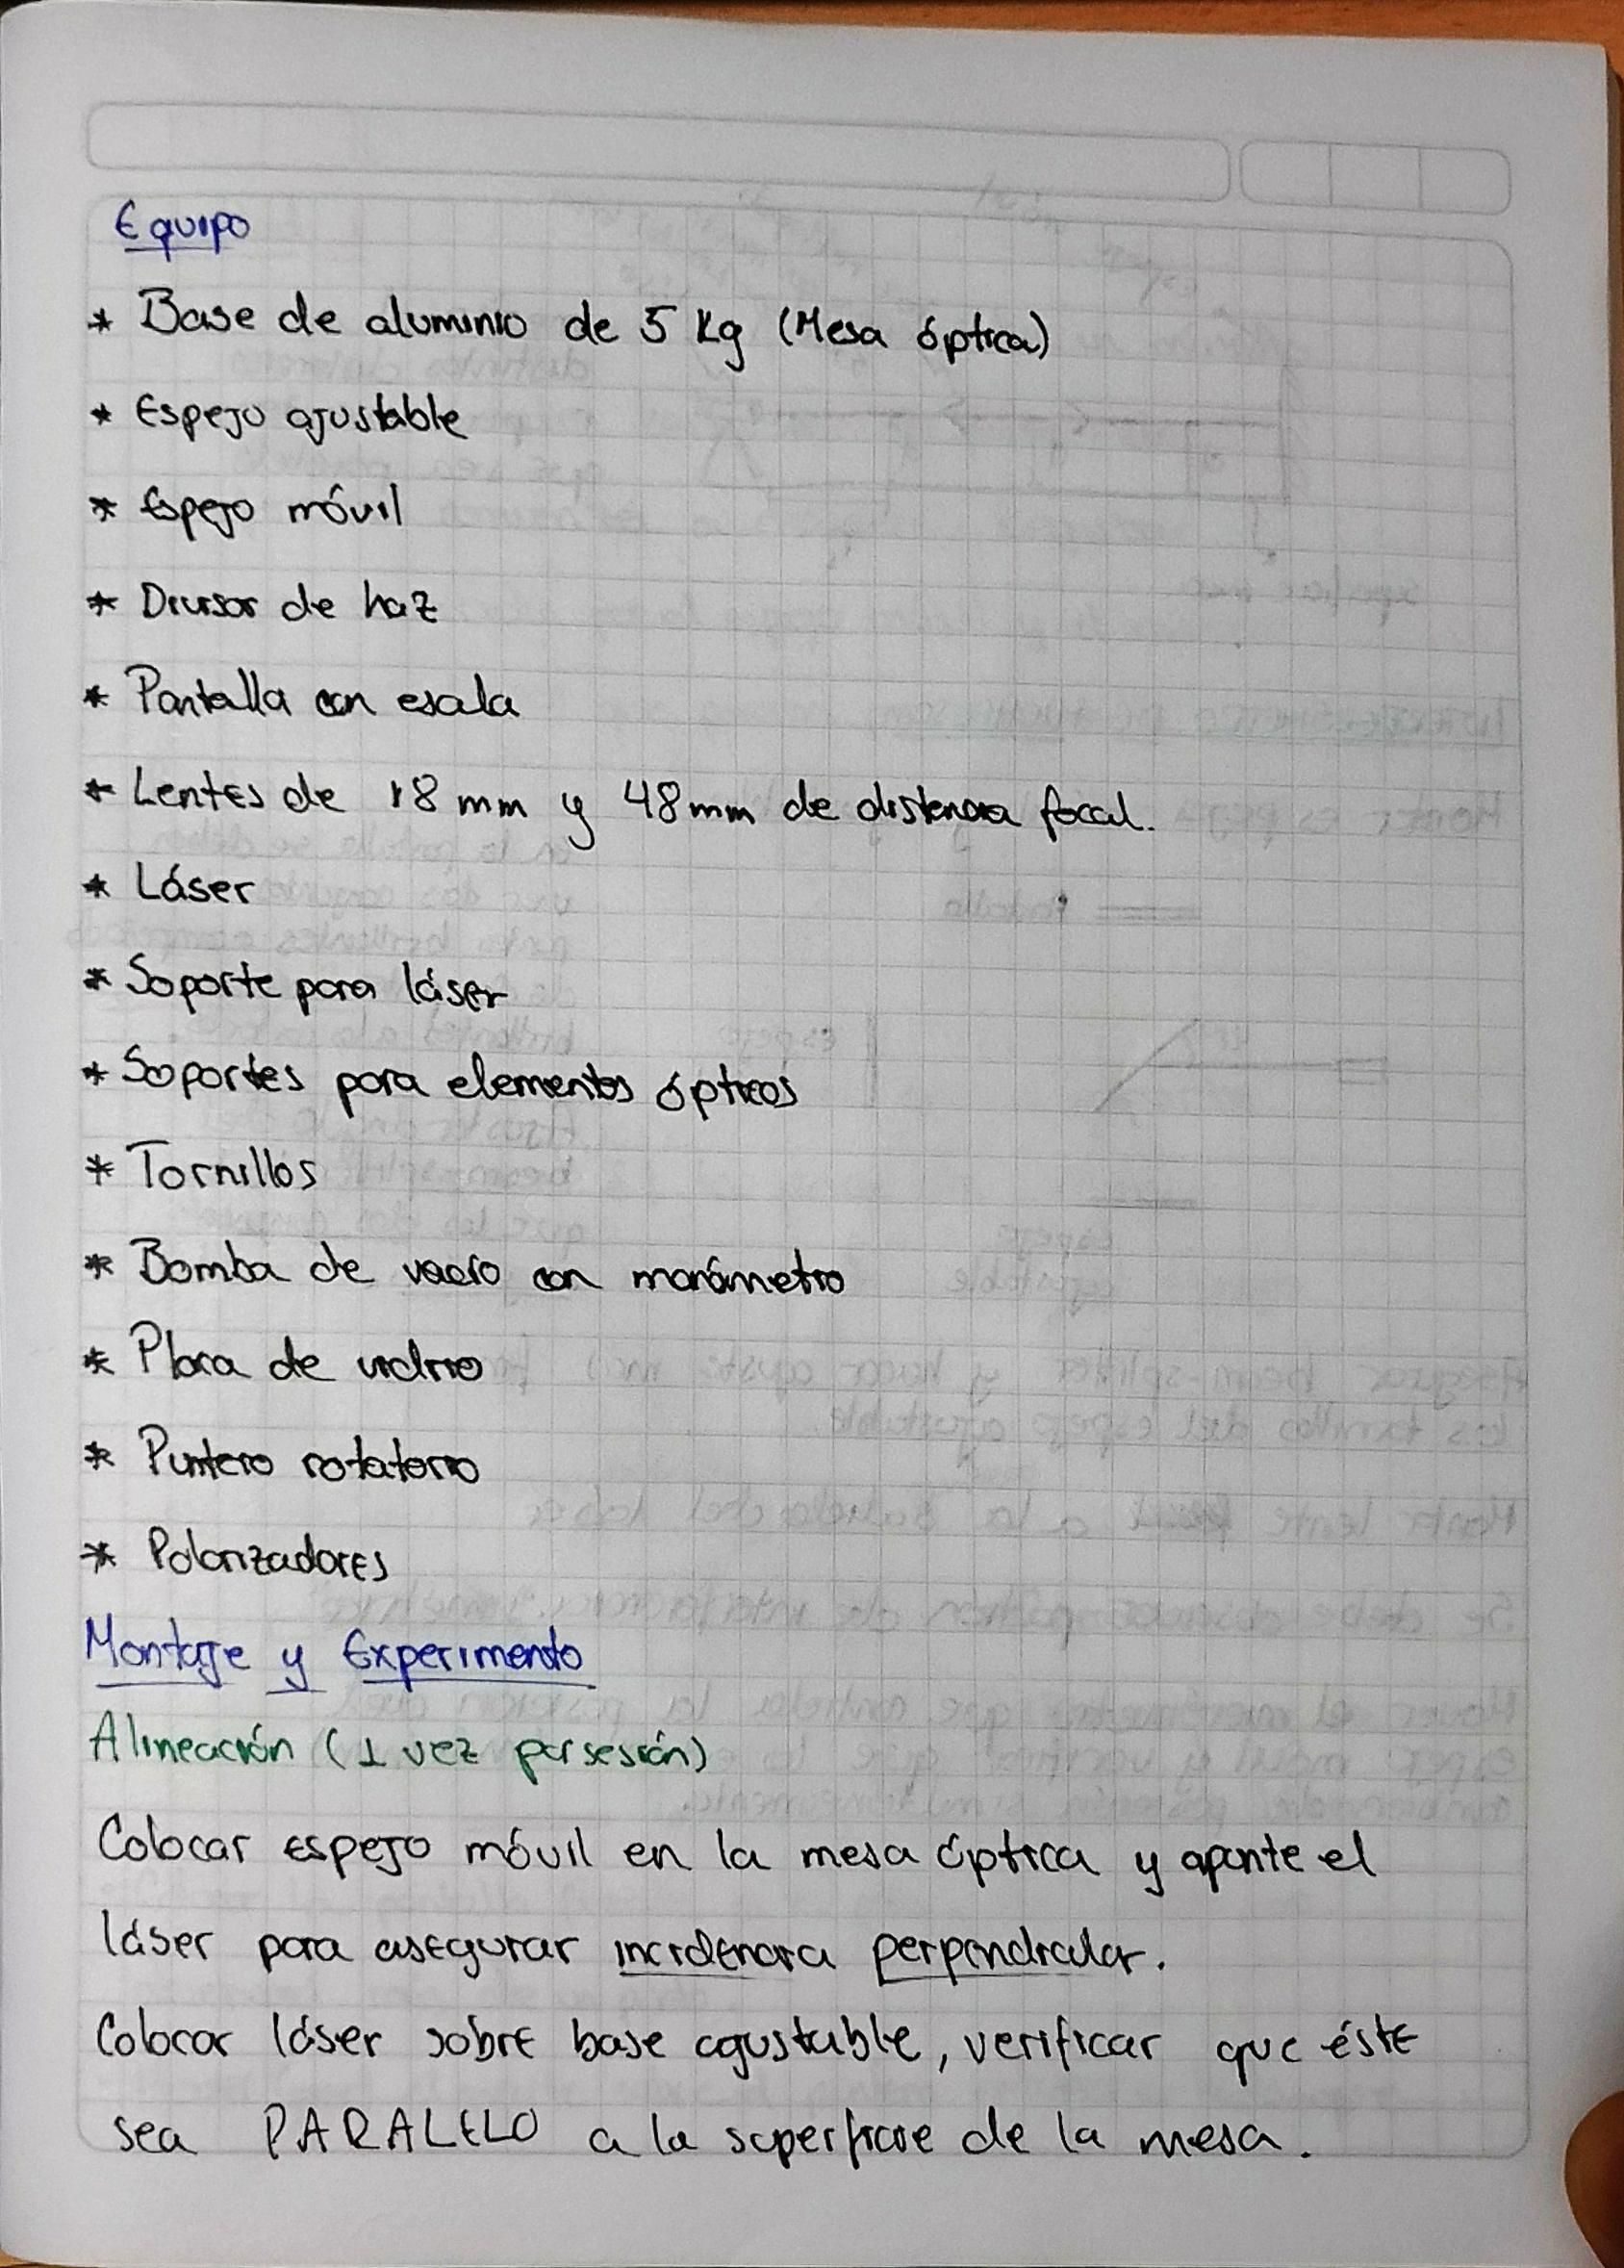 Equipo
* Base de aluminio de 5 Kg (Mesa óptica)
* Espejo ajustable
* Espejo móvil
* Divisor de haz
* Pantalla con escala
* Lentes de 18 mm y 48 mm de distancia focal.
* Láser
* Soporte para láser
* Soportes para elementos ópticos
* Tornillos
* Bomba de vacío con manómetro
* Placa de vidrio
* Puntero rotatorio
* Polarizadores
Montaje y Experimento
Alineación (1 vez por sesión)
Colocar espejo móvil en la mesa óptica y apunte el
láser para asegurar incidencia perpendicular.
Colocar láser sobre base ajustable, verificar que éste
sea PARALELO a la superficie de la mesa.